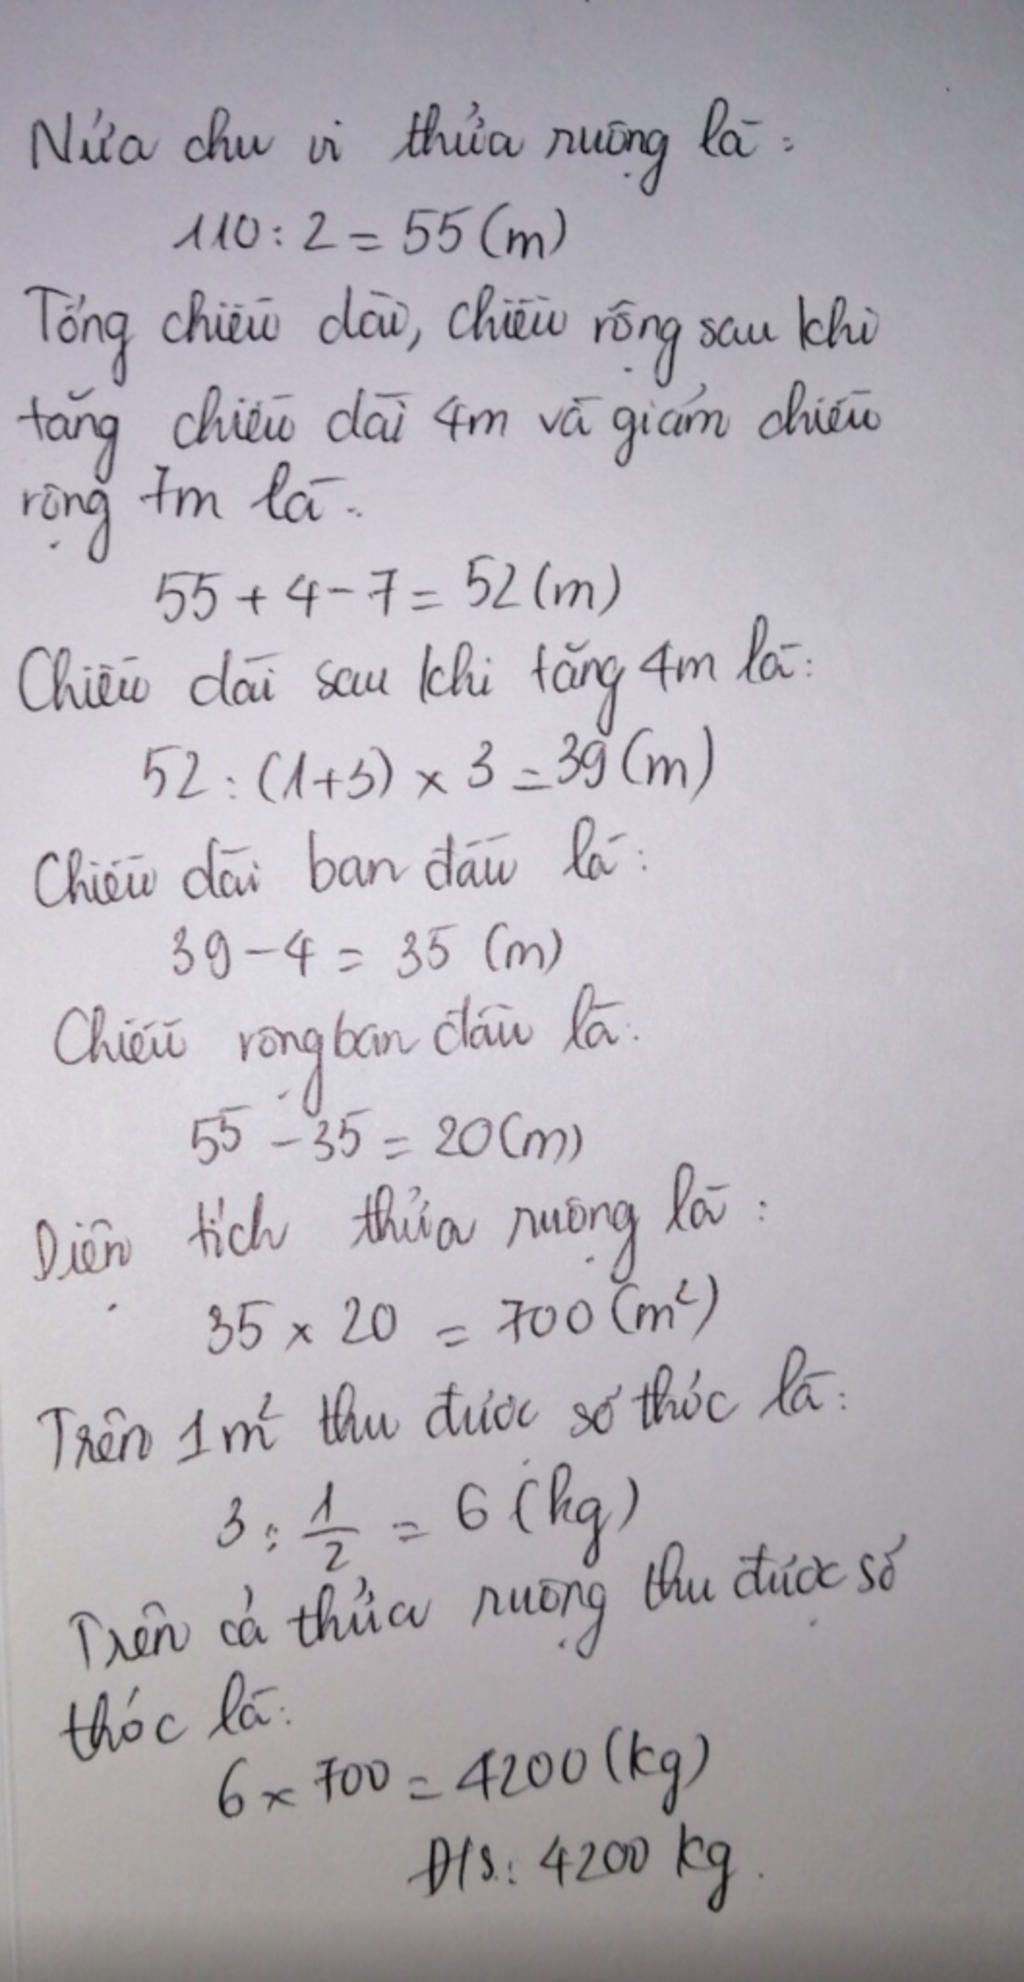 Nửa chu vi thửa ruộng là:
110 : 2 = 55 (m)
Tổng chiều dài, chiều rộng sau khi
tăng chiều dài 4m và giảm chiều
rộng 7m là:
55 + 4 - 7 = 52 (m)
Chiều dài sau khi tăng 4m là:
52 : (1+3) × 3 = 39 (m)
Chiều dài ban đầu là:
39 - 4 = 35 (m)
Chiều rộng ban đầu là:
55 - 35 = 20 (m)
Diện tích thửa ruộng là:
35 × 20 = 700 (m²)
Trên 1m² thu được số thóc là:
3 : 1/2 = 6 (kg)
Trên cả thửa ruộng thu được số
thóc là:
6 × 700 = 4200 (kg)
Đ/s: 4200 kg.